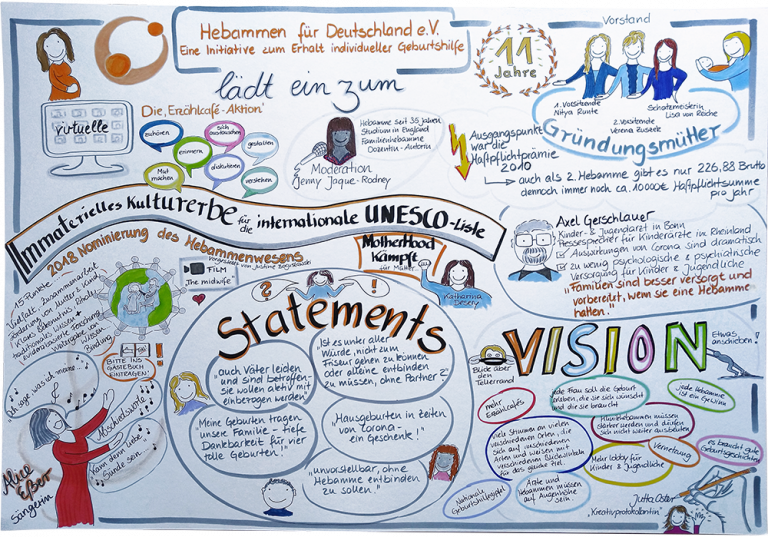 Hebammen für Deutschland e.V.
Eine Initiative zum Erhalt individueller Geburtshilfe
lädt ein zum
11
Jahre
Vorstand
1. Vorsitzende
Nitya Runte
2. Vorsitzende
Verena
Schatzmeisterin
Lisa von Reiche
Gründungsmütter
virtuelle
Die „Erzählcafé-Aktion“
zuhören
sich austauschen
gestalten
erinnern
diskutieren
Mut machen
verstehen
Hebamme seit 35 Jahren
Studium in England
Familienhebamme
Dozentin - Autorin
Moderation
Jenny Jaque-Rodney
Ausgangspunkt
war die
Haftpflichtprämie
2010
auch als 2. Hebamme gibt es nur 226,88 Brutto
dennoch immer noch ca. 10000€ Haftpflichtsumme
pro Jahr
Immaterielles Kulturerbe für die internationale UNESCO-Liste
2018 Nominierung des Hebammenwesens
vorgestellt von Justine
15 Punkte:
Vielfalt, Zusammenarbeit
Förderung von Mutter & Kind
Klares Bekenntnis, Ethik
traditionelles Wissen &
evidenzbasierte Forschung
Weitergabe von
Wissen
Bindung
Film
The midwife
MotherHood
Kämpft
für Mütter
Katharina
Desery
Axel Gerschlauer
Kinder- & Jugendarzt in Bonn
Pressesprecher für Kinderärzte im Rheinland
Auswirkungen von Corona sind dramatisch
zu wenig psychologische & psychiatrische
Versorgung für Kinder & Jugendliche
"Familien sind besser versorgt und
vorbereitet, wenn sie eine Hebamme
hatten."
Statements
"auch Väter leiden
und sind betroffen -
sie wollen aktiv mit
einbezogen werden"
"Ist es unter aller
Würde, nicht zum
Friseur gehen zu können
oder alleine entbinden
zu müssen, ohne Partner?"
Meine Geburten tragen
unsere Familie - tiefe
Dankbarkeit für vier
tolle Geburten!"
"Hausgeburten in Zeiten
von Corona -
ein Geschenk!"
"unvorstellbar, ohne
Hebamme entbinden
zu sollen."
BITTE INS
GÄSTEBUCH
EINTRAGEN
!
"Ich sage was ich meine..."
Abschiedsworte
Kann denn Liebe
Sünde sein
Alice
Eßer
Sängerin
VISION
Blick über
den
Tellerrand
Etwas
anschieben!
mehr
Erzählcafés
jede Frau soll die Geburt
erleben, die sie sich wünscht
und die sie braucht
jede Hebamme
ist ein Gewinn
viele Stimmen an vielen
verschiedenen Orten, die
sich auf verschiedenen
Arten und Weisen mit
verschiedenen Blickwinkeln
für das gleiche Ziel
Klinikhebammen müssen
stärker werden und dürfen
sich nicht weiter ausbeuten
Mehr Lobby für
Kinder & Jugendliche
Vernetzung
es braucht gute
Geburtsgeschichten
Nationale
Geburtshilfegipfel
Ärzte und
Hebammen müssen
auf Augenhöhe
sein
Jutta Oster
"Kreativprotokollantin"